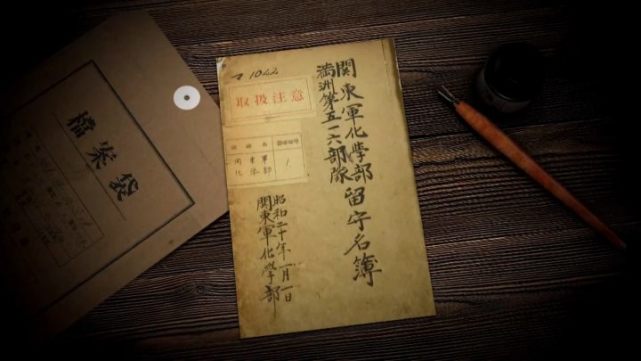 檔案袋
マ 1042
取扱注意
関東軍
化学部
1
満洲第五一六部隊
関東軍化學部留守名簿
昭和二十年一月一日
関東軍化學部